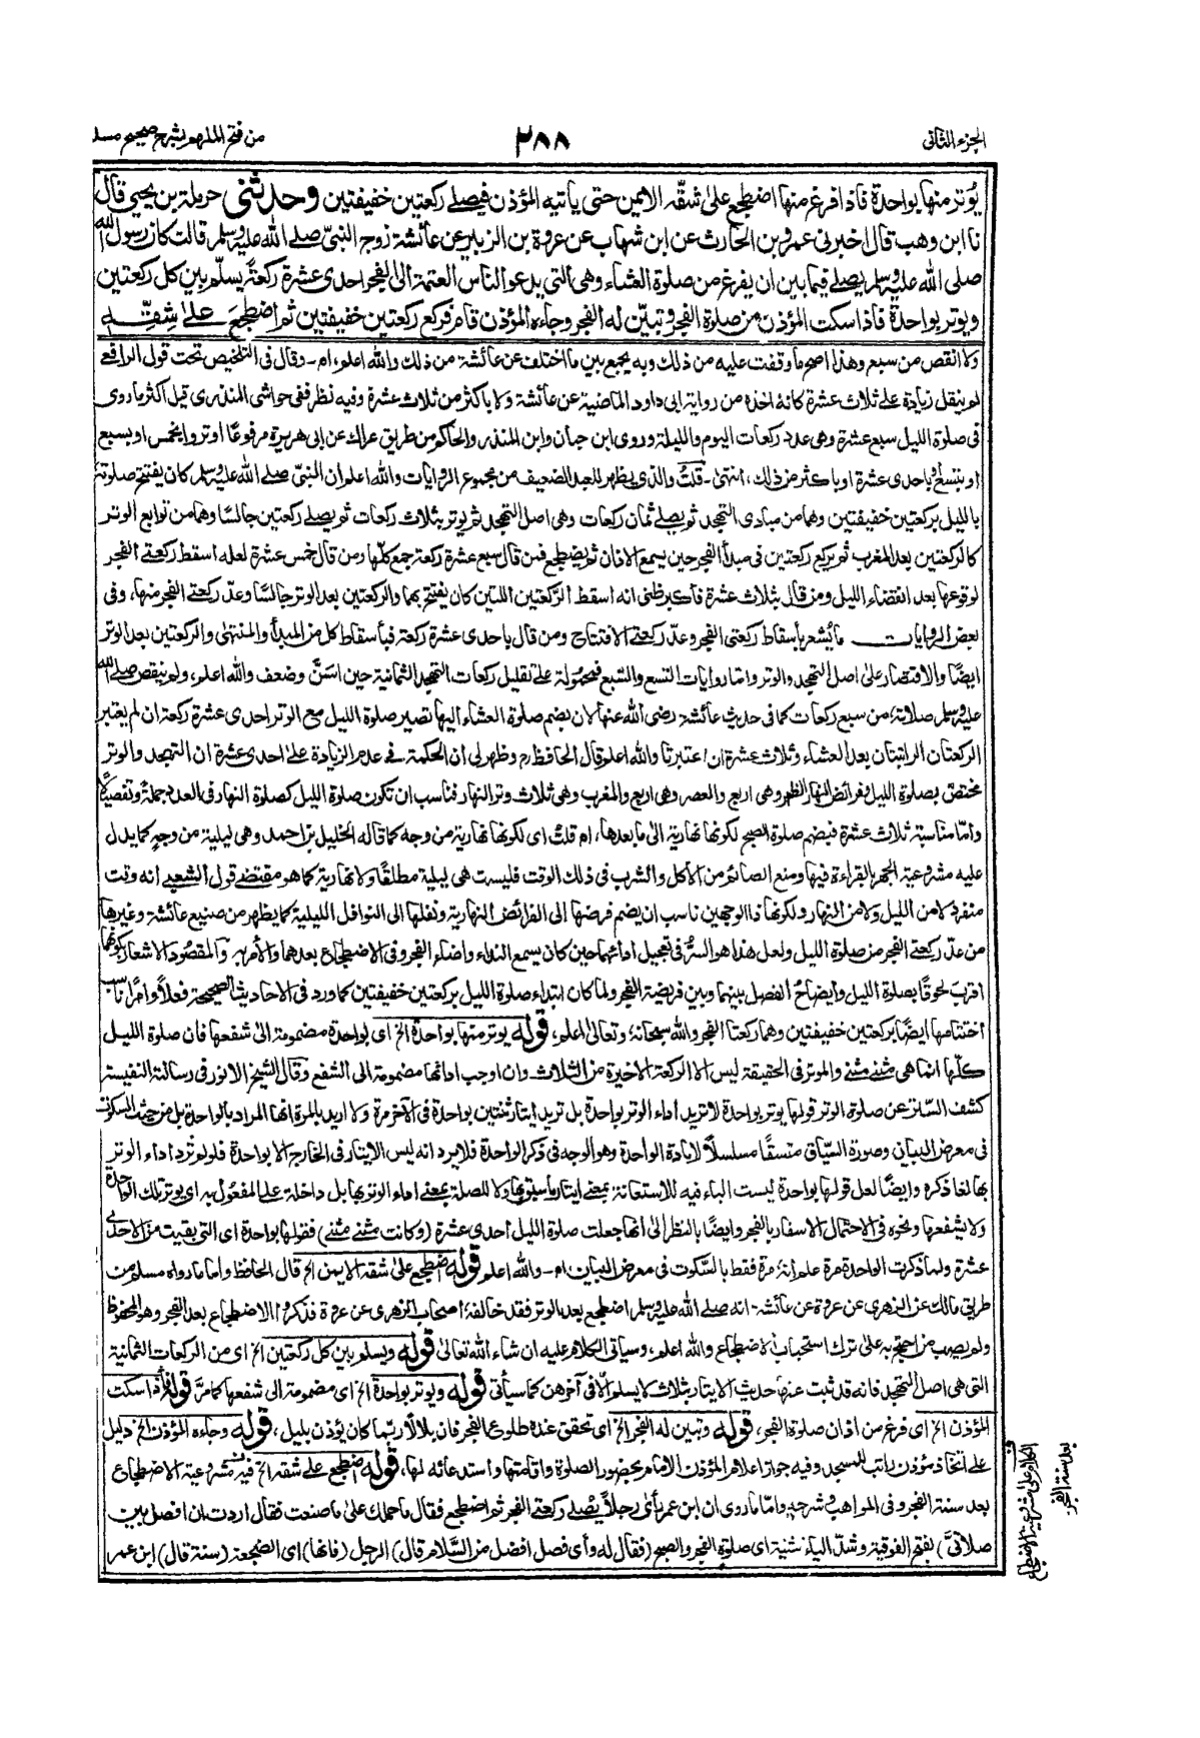 الجزء الثانى
٢٨٨
من فتح الملهم بشرح صحيح مسلم
يُوتر منها بواحدة فاذا فرغ منها اضطجع على شقّه الايمن حتى يأتيه المؤذن فيصلے ركعتين خفيفتين وحدثنى حرملة بن يحيى قال
نا ابن وهب قال اخبرنى عمرو بن الحارث عن ابن شهاب عن عروة بن الزبير عن عائشة زوج النبىّ صلے الله عليه وسلم قالت كان رسول الله
صلى الله عليه وسلم يصلے فيما بين ان يفرغ من صلوة العشاء وهى التى يدعو الناس العتمة الى الفجر احدى عشرة ركعةً يسلّم بين كل ركعتين
ويوتر بواحدةٍ فاذا سكت المؤذن من صلوة الفجر وتبيّن له الفجر وجاءه المؤذن قام فركع ركعتين خفيفتين ثم اضطجع على شِقّه
ولا انقص من سبع وهذا اصح ما وقفت عليه من ذلك وبه يجمع بين ما اختلف عن عائشة من ذلك والله اعلم، اه - وقال فى التلخيص تحت قول الرافعے
لم ينقل زيادة على ثلاث عشرة كانه اخذه من رواية ابى داود الماضية عن عائشة ولا باكثر من ثلاث عشرة وفيه نظر ففى حواشى المنذرى قيل اكثر ما روى
فى صلوة الليل سبع عشرة وهى عدد ركعات اليوم والليلة وروى ابن حبان وابن المنذر والحاكم من طريق عراك عن ابى هريرة مرفوعًا اوتروا بخمس او بسبع
او بتسع او باحدى عشرة او باكثر من ذلك، انتهى - قلتُ والذى يظهر للعبد الضعيف من مجموع الروايات والله اعلم ان النبىّ صلے الله عليه وسلم كان يفتتح صلوته
بالليل بركعتين خفيفتين وهما من مبادى التهجد ثم يصلے ثمان ركعات وهى اصل التهجد ثم يوتر بثلاث ركعات ثم يصلے ركعتين جالسًا وهما من توابع الوتر
كالركعتين بعد المغرب ثم يركع ركعتين فى مبدأ الفجر حين يسمع الاذان ثم يضطجع فمن قال سبع عشرة ركعة جمع كلّها ومن قال خمس عشرة لعله اسقط ركعتے الفجر
لوقوعها بعد انقضاء الليل ومن قال بثلاث عشرة فاكبر ظنى انه اسقط الركعتين اللتين كان يفتتح بهما والركعتين بعد الوتر جالسًا وعدّ ركعتے الفجر منها، وفى
بعض الروايات ما يُشعر بأسقاط ركعتى الفجر وعدّ ركعتے الافتتاح ومن قال باحدى عشرة ركعة فبأسقاط كل من المبدأ والمنتهى والركعتين بعد الوتر
ايضًا والاقتصار على اصل التهجد والوتر واما روايات التسع والسبع فمحمولة على تقليل ركعات التهجد الثمانية حين اسَنّ وضعف والله اعلم، ولم ينقص صلے الله
عليه وسلم صلاته من سبع ركعات كما فى حديث عائشة رضى الله عنها لان بضم صلوة العشاء اليها تصير صلوة الليل مع الوتر احدى عشرة ركعة ان لم يعتبر
الركعتان الراتبتان بعد العشاء وثلاث عشرة ان اعتبرتا والله اعلم قال الحافظ رح وظهر لى ان الحكمة فى عدم الزيادة على احدى عشرة ان التهجد والوتر
مختص بصلوة الليل وفرائض النهار الظهر وهى اربع والعصر وهى اربع والمغرب وهى ثلاث وتر النهار فناسب ان تكون صلوة الليل كصلوة النهار فى العدد جملةً وتفصيلاً
واما مناسبة ثلاث عشرة فبضم صلوة الصبح لكونها نهارية الى ما بعدها، اه قلت اى لكونها نهارية من وجه كما قاله الخليل بن احمد وهى ليلية من وجهٍ كما يدل
عليه مشروعية الجهر بالقراءة فيها ومنع الصائم من الأكل والشرب فى ذلك الوقت فليست هى ليلية مطلقًا ولا نهارية كما هو مقتضے قول الشعبے انه وقت
منفرد لا من الليل ولا من النهار ولكونها ذا الوجهين ناسب ان يضم فرضها الى الفرائض النهارية ونفلها الى النوافل الليلية كما يظهر من صنيع عائشة وغيرها
من عدّ ركعتے الفجر من صلوة الليل ولعل هذا هو السرُّ فى تعجيل ادائهما حين كان يسمع النداء واضاء الفجر وفى الاضطجاع بعدهما والأمر به والمقصود الاشعار بكونها
اقرب لحوقًا بصلوة الليل وأيضاحُ الفصل بينهما وبين فريضة الفجر ولما كان ابتداء صلوة الليل بركعتين خفيفتين كما ورد فى الاحاديث الصحيحة فعلاً وأمرًا ناسب
اختتامها ايضًا بركعتين خفيفتين وهما ركعتا الفجر والله سبحانه وتعالى اعلم، قوله يوتر منها بواحدة الخ اى بواحدة مضمومة الى شفعها فان صلوة الليل
كلّها انما هى مثنے مثنے والموتر فى الحقيقة ليس الا الركعة الاخيرة من الثلاث وان اوجب اداءها مضمومة الى الشفع وقال الشيخ الانور فى رسالته النفيسة
كشف الستر عن صلوة الوتر قولها يوتر بواحدة لا تريد اداء الوتر بواحدة بل تريد ايتار ثنتين بواحدة فى الآخر مرة ولا اريد بالمرة انها المراد بالواحدة بل من حيث السكوت
فى معرض البيان وصورة السياق متسقًا مسلسلاً لافادة الواحدة وهو الوجه فى ذكر الواحدة فلا يرد انه ليس الايتار فى الخارج الا بواحدة فلو لم تُرد اداء الوتر
بها لغا ذكره وايضًا لعل قولها بواحدة ليست الباء فيه للاستعانة بمعنى ايتار ما سبق بها ولا للصلة بمعنى اداء الوتر بها بل داخلة على المفعول به اى يوتر تلك الواحدة
ولا يشفعها ونحوه فى الاحتمال الاسفار بالفجر وايضًا بالنظر الى انها جعلت صلوة الليل احدى عشرة (وكانت مثنے مثنے) فقولها بواحدة اى التى بقيت من الاحدى
عشرة ولما ذكرت الواحدة مرة علم انه مرة فقط بالسكوت فى معرض البيان اه - والله اعلم قوله اضطجع على شقه الايمن الخ قال الحافظ واما ما رواه مسلم من
طريق مالك عن الزهرى عن عروة عن عائشة - انه صلے الله عليه وسلم اضطجع بعد الوتر فقد خالفه اصحاب الزهرى عن عروة فذكروا الاضطجاع بعد الفجر وهو المحفوظ
ولم يصب من احتج به على ترك استحباب الاضطجاع والله اعلم، وسيأتى الكلام عليه ان شاء الله تعالى قوله ويسلم بين كل ركعتين الخ اى من الركعات الثمانية
التى هى اصل التهجد فانه قد ثبت عنها حديث الايتار بثلاث لا يسلم الا فى آخرهن كما سيأتى قوله ويوتر بواحدة الخ اى مضمومة الى شفعها كما مرّ قوله فاذا سكت
المؤذن الخ اى فرغ من اذان صلوة الفجر، قوله وتبين له الفجر الخ اى تحقق عنده طلوع الفجر فان بلالاً ربما كان يؤذن بليل، قوله وجاءه المؤذن الخ دليل
على اتخاذ مؤذن راتب للمسجد وفيه جواز اعلام المؤذن الامام بحضور الصلوة واقامتها واستدعائه لها، قوله اضطجع على شقه الخ فيه مشروعية الاضطجاع
بعد سنة الفجر وفى المواهب وشرحه واما ما روى ان ابن عمر رأى رجلاً يصلے ركعتے الفجر ثم اضطجع فقال ما حملك على ما صنعت فقال اردت ان افصل بين
صلاتىّ) بفتح الفوقية وشدّ الياء تثنية اى صلوة الفجر والصبح (فقال له وأى فصل افضل من السلام قال) الرجل (فانها) اى الضجعة (سنة قال) ابن عمر
الكلام على مشروعية الاضطجاع
بعد سنة الفجر